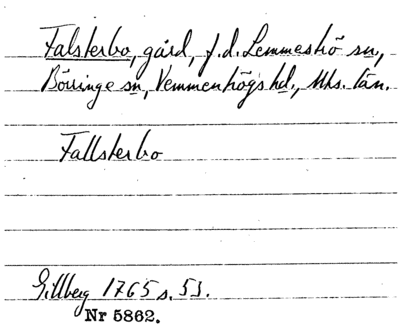 Falsterbo, gård, f.d. Lemmeströ sn,
Börringe sn, Vemmenhögs hd., Mhs. län.
Fallsterbo
Gillberg 1765 s. 53.
Nr 5862.